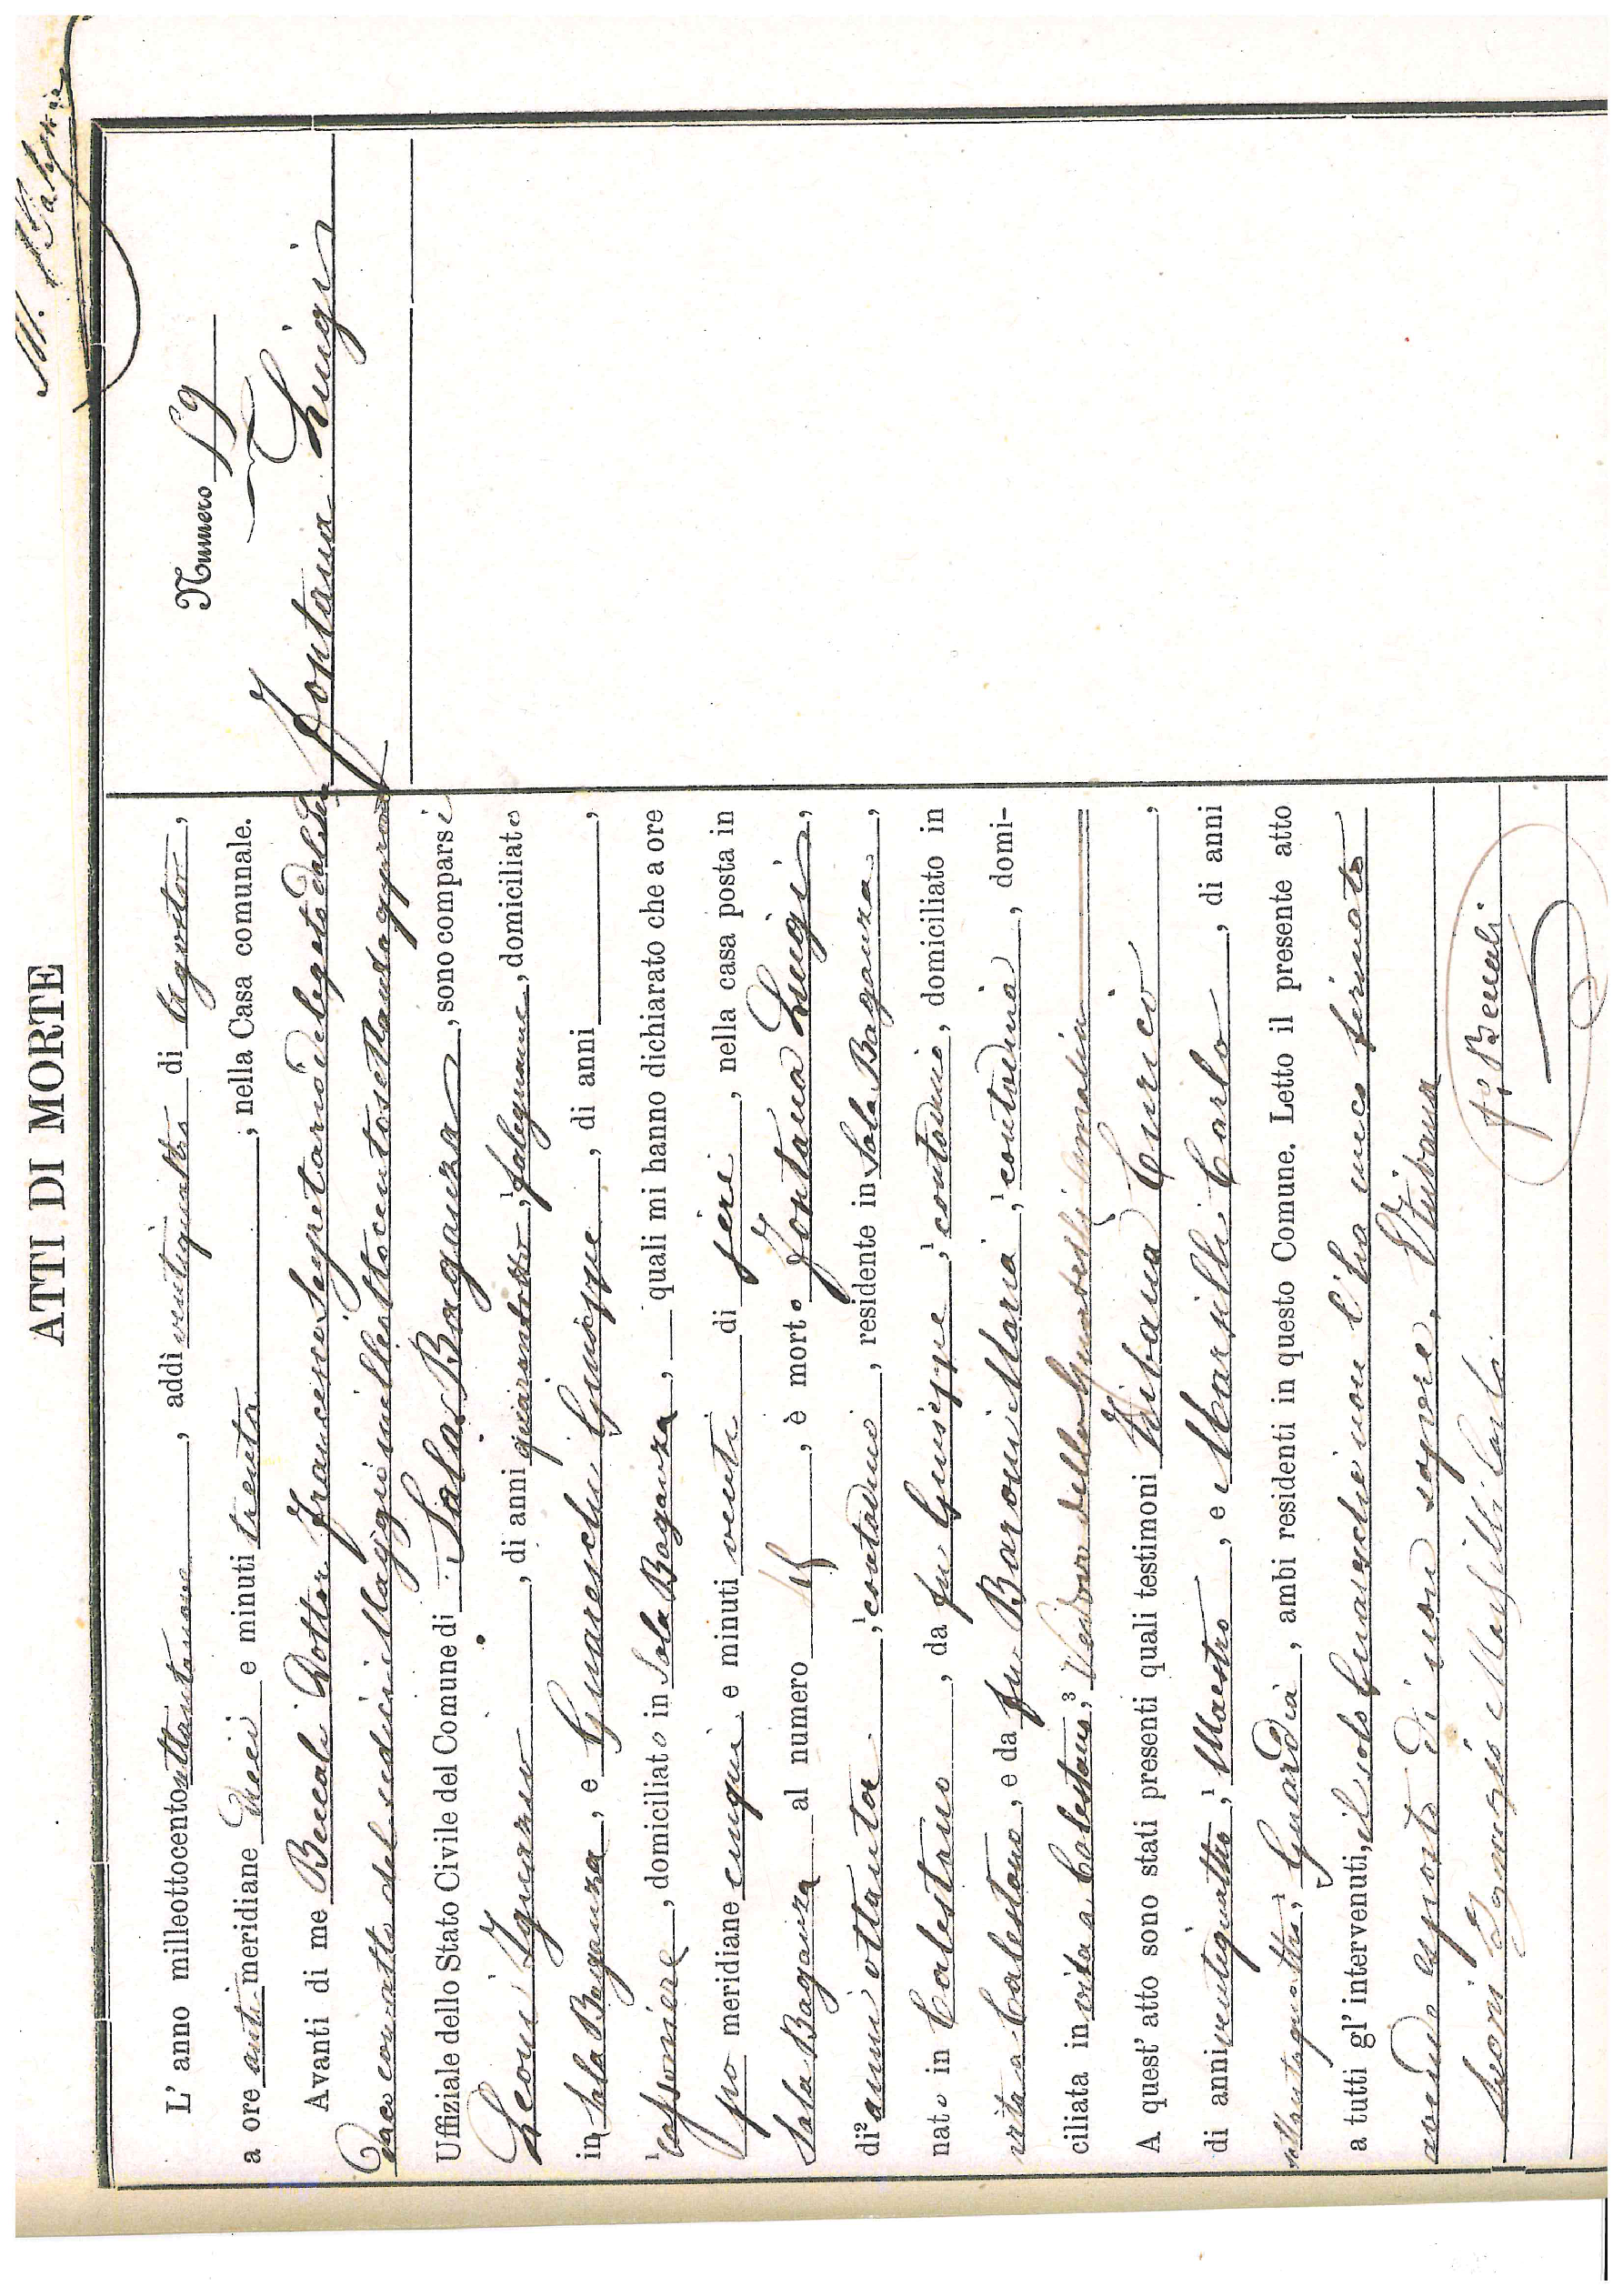 ATTI DI MORTE
Numero 59
Fontana Luigi
L' anno milleottocentottantanove, addì ventiquattro di Agosto,
a ore anti meridiane dieci e minuti trenta, nella Casa comunale.
Avanti di me Beccali Dottor Francesco Segretario delegato dal Sin
daco con atto del sedici Maggio milleottocentosettanta approvato
Uffiziale dello Stato Civile del Comune di Sala Baganza, sono comparsi
Leoni Ignazio, di anni quarantotto, ¹ falegname, domiciliato
in Sala Baganza, e Guareschi Giuseppe, di anni
¹ , domiciliato in Sala Baganza, quali mi hanno dichiarato che a ore
po meridiane cinque e minuti venti di jeri, nella casa posta in
Sala Baganza al numero, è morto Fontana Luigi,
di² anni ottanta, ¹ contadino, residente in Sala Baganza,
nato in Calestano, da fu Giuseppe, ¹ contadino, domiciliato in
vita a Calestano, e da fu Baroni Maria, ¹ contadina, domi-
ciliata in vita a Calestano, ³ Vedovo della
A quest' atto sono stati presenti quali testimoni Urbana Enrico,
di anni ventiquattro, ¹ Maestro, e Marsilli Carlo, di anni
settantaquattro, ¹ Guardia, ambi residenti in questo Comune. Letto il presente atto
a tutti gl' intervenuti, il solo Guareschi non l'ha meco firmato
avendo esposto di non sapere. Urbana
Leoni Ignazio Marsilli Carlo
F. Beccali